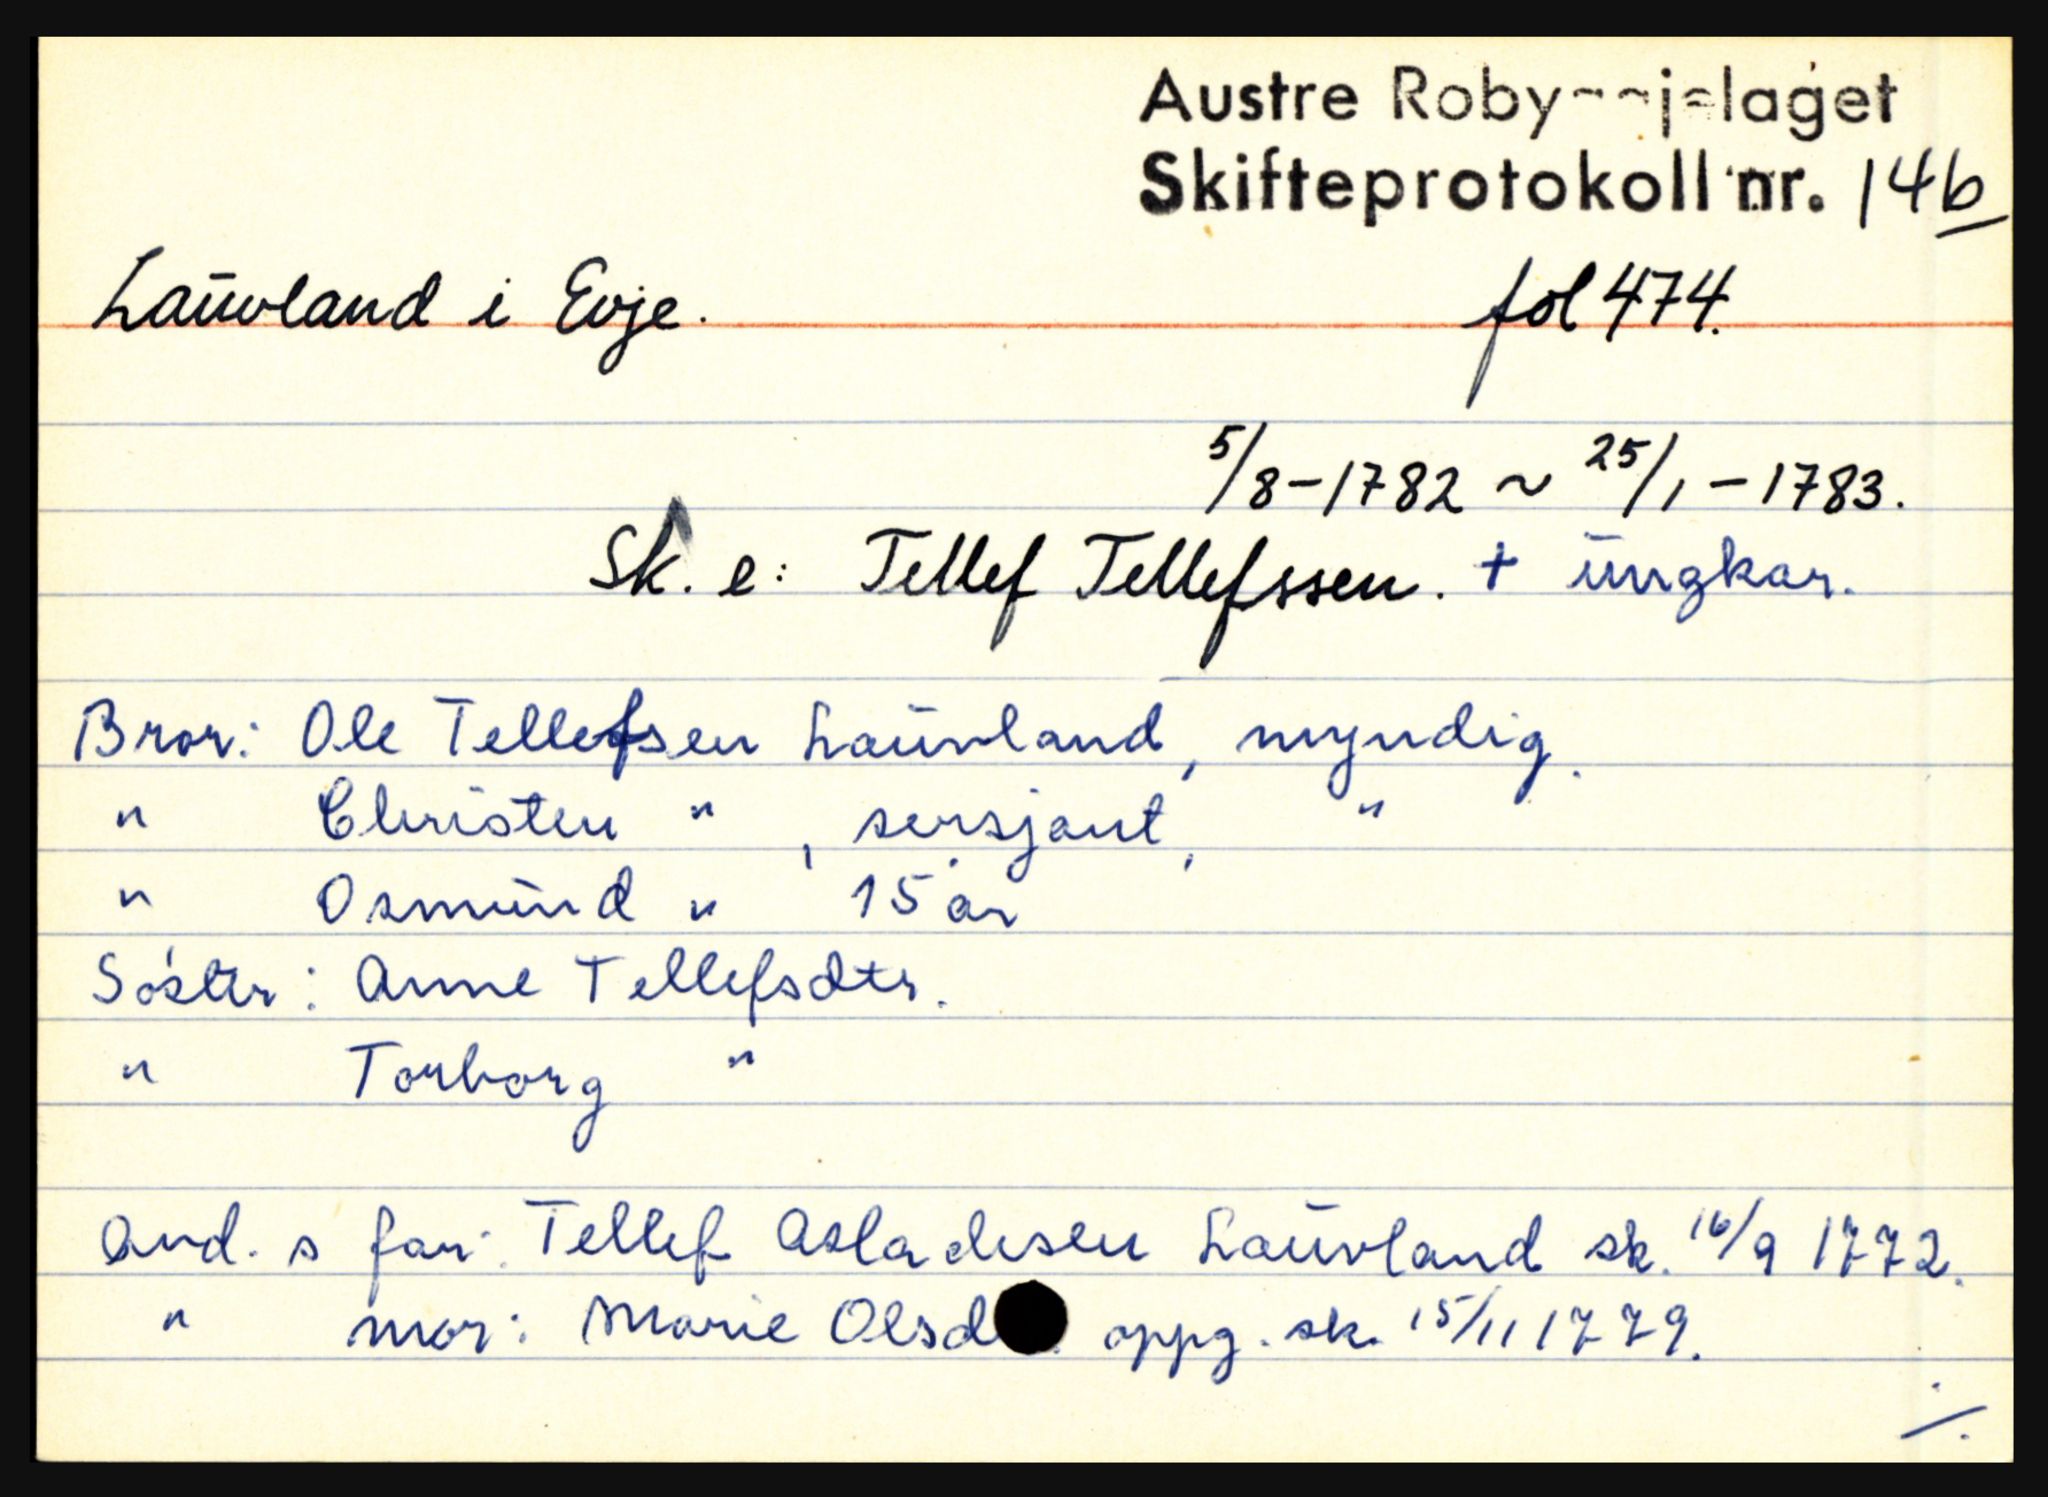 Austre Robyggjelaget
Skifteprotokoll nr. 14b
Lauvland i Evje. fol 474.
5/8-1782 ~ 25/1-1783.
Sk. e: Tellef Tellefssen. + ungkar.
Bror: Ole Tellefsen Lauvland, myndig.
" Christen " , sersjant, "
" Osmund " 15 år
Søster: Anne Tellefsdtr.
" Torborg "
Avd. s far: Tellef Aslachsen Lauvland sk. 16/9 1772.
" mor: Marie Olsd. oppg. sk. 15/11 1779.